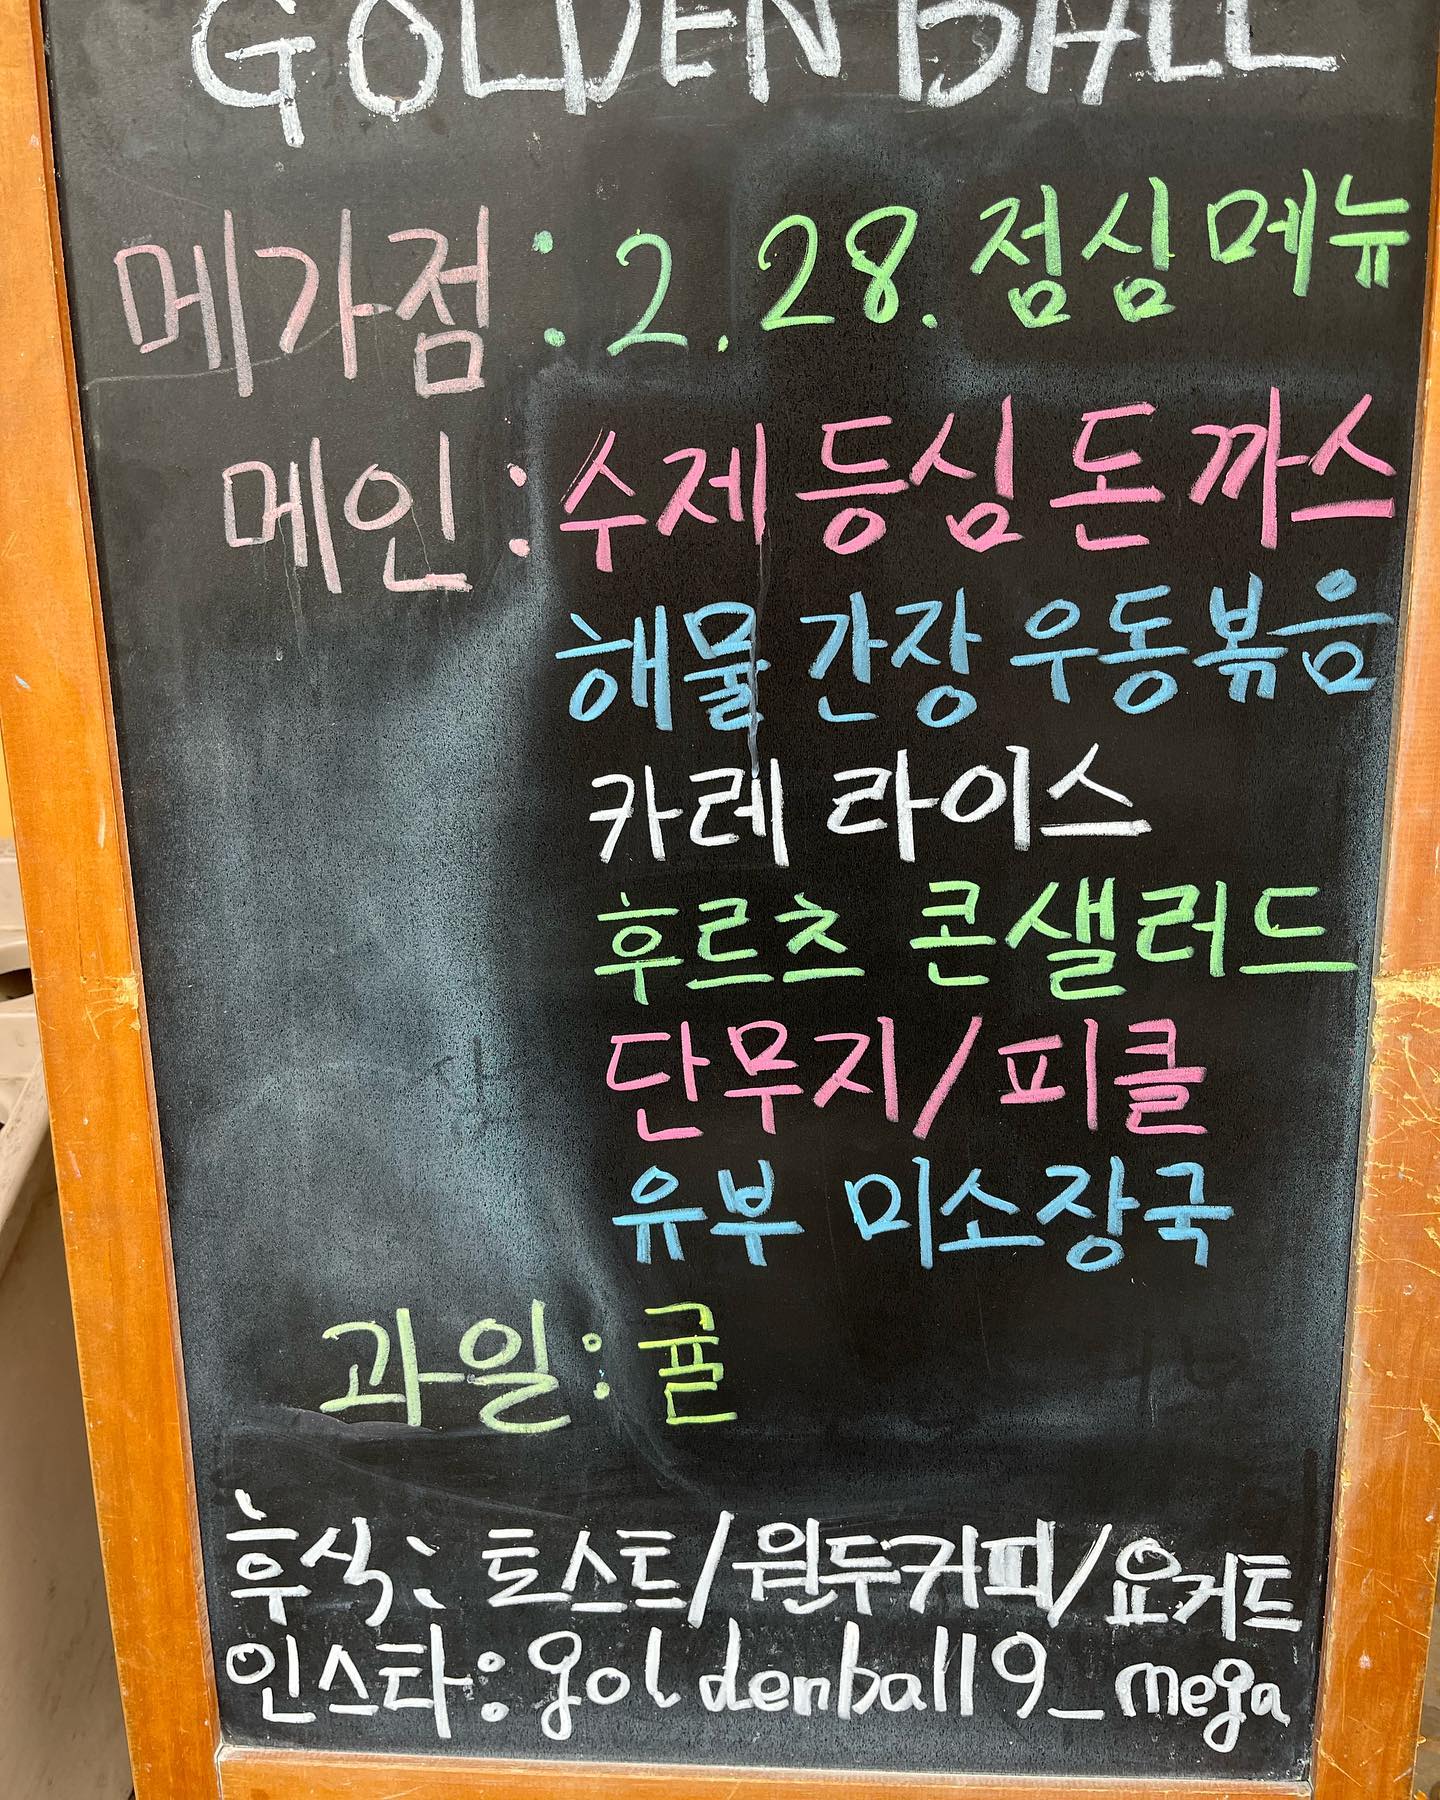 GOLDEN BALL
메가점 : 2. 28. 점심 메뉴
메인 : 수제 등심 돈까스
해물 간장 우동볶음
카레 라이스
후르츠 콘샐러드
단무지/피클
유부 미소장국
과일 : 귤
후식 : 토스트/원두커피/요거트
인스타 : goldenball19_mega